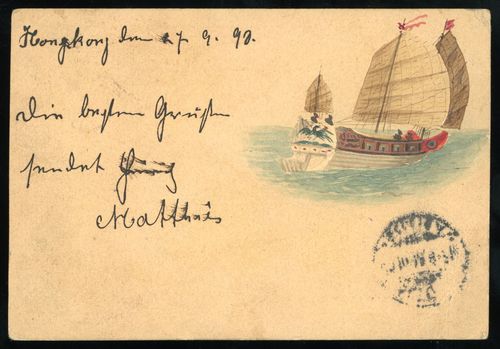 Hongkong den 27 9. 98.
Die besten Grüße
sendet
Matthäs